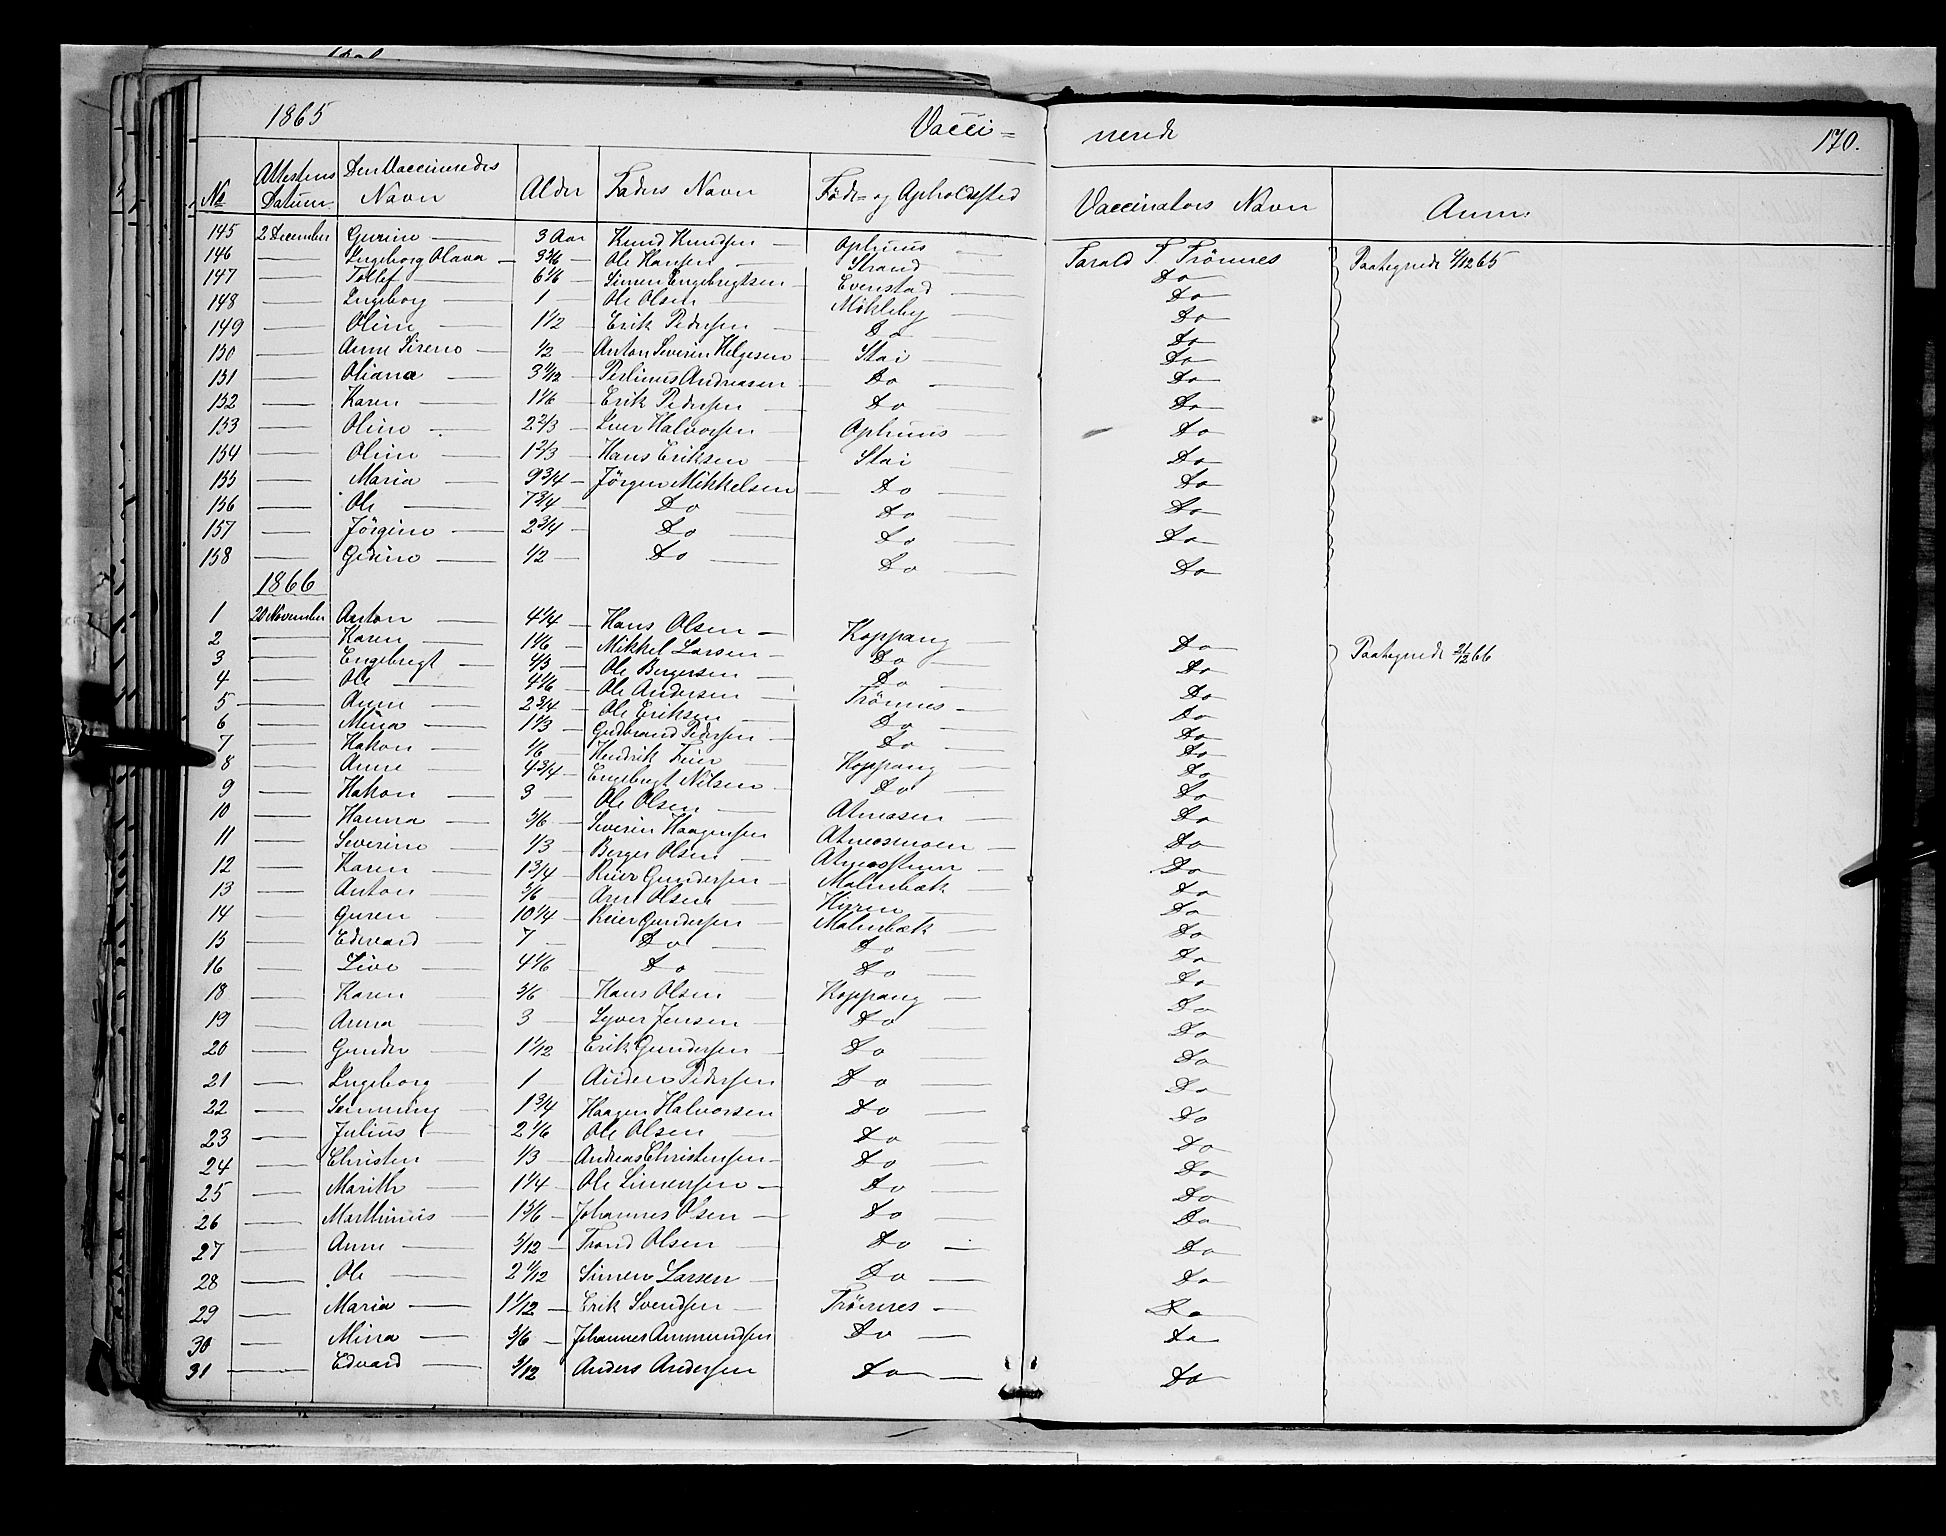 1865 Vacci= nerede 170.
No Attestens Datum Den Vaccineredes Navn Alder Faders Navn Føde= og Opholdssted Vaccinators Navn Anm.
145 2 December Gurine 3 Aar Knud Knudsen Ophuus Tarald T Trønnes Paategnede 4/12 65
146 — Ingeborg Olava Ole Hansen Strand Do
147 — Tollef 6 1/6 Simen Engebregtsen Evenstad Do
148 — Ingeborg 1 Ole Olsen Mikleby Do
149 — Oline 1 1/2 Erik Pedersen Do Do
150 — Anne Sireno 1/2 Anton Severin Helgesen Stai Do
151 — Oliana 3 1/12 Andreasen Do Do
152 — Karen 1 1/6 Erik Pedersen Do Do
153 — Oline 2 2/3 Iver Halvorsen Ophuus Do
154 — Oline 1 2/3 Hans Eriksen Stai Do
155 — Maria 9 3/4 Jørgen Mikkelsen Do Do
156 — Ole 7 3/4 Do Do Do
157 — Jørgine 2 3/4 Do Do Do
158 — Gesine 1/2 Do Do Do
1866
1 20 November Anton 4 1/4 Hans Olsen Koppang Do Paategnede 21/12 66
2 — Karen 1 1/6 Mikkel Larsen Do Do
3 — Engebregt 4/3 Ole Bergersen Do Do
4 — Ole 4 1/6 Ole Andersen Trønnes Do
5 — Anne 2 3/4 Ole Eriksen Do Do
6 — Mina 1 1/3 Gudbrand Pedersen Do Do
7 — Hakon 1/6 Hendrik Feier Koppang Do
8 — Anne 4 3/4 Engebregt Nilsen Do Do
9 — Hakon 3 Ole Olsen Atneosen Do
10 — Hanna 5/6 Severin Haagensen Atneosmoen Do
11 — Severine 1/3 Berger Olsen Do
12 — Karen 1 3/4 Reier Gundersen Malmbæk Do
13 — Anton 5/6 Arne Olsen Hirren Do
14 — Guren 10 1/4 Reier Gundersen Malmbæk Do
15 — Edevard 7 Do Do Do
16 — Live 4 1/6 Do Do Do
18 — Karen 5/6 Hans Olsen Koppang Do
19 — Anna 3 Syver Jensen Do Do
20 — Gunder 1 1/12 Erik Gundersen Do Do
21 — Ingeborg 1 Auden Pedersen Do Do
22 — Semming 1 3/4 Haagen Halvorsen Do Do
23 — Julius 2 1/6 Ole Olsen Do Do
24 — Christen 1/3 Andreas Christensen Do Do
25 — Marith 1 1/4 Ole Simensen Do Do
26 — Marthinus 1 5/6 Johannes Olsen Do Do
27 — Anne 5/12 Trond Olsen Do Do
28 — Ole 2 11/12 Simen Larsen Do Do
29 — Maria 1 1/12 Erik Svendsen Trønnes Do
30 — Mina 5/6 Johannes Ammundsen Do Do
31 — Edvard 5/12 Anders Andersen Do Do